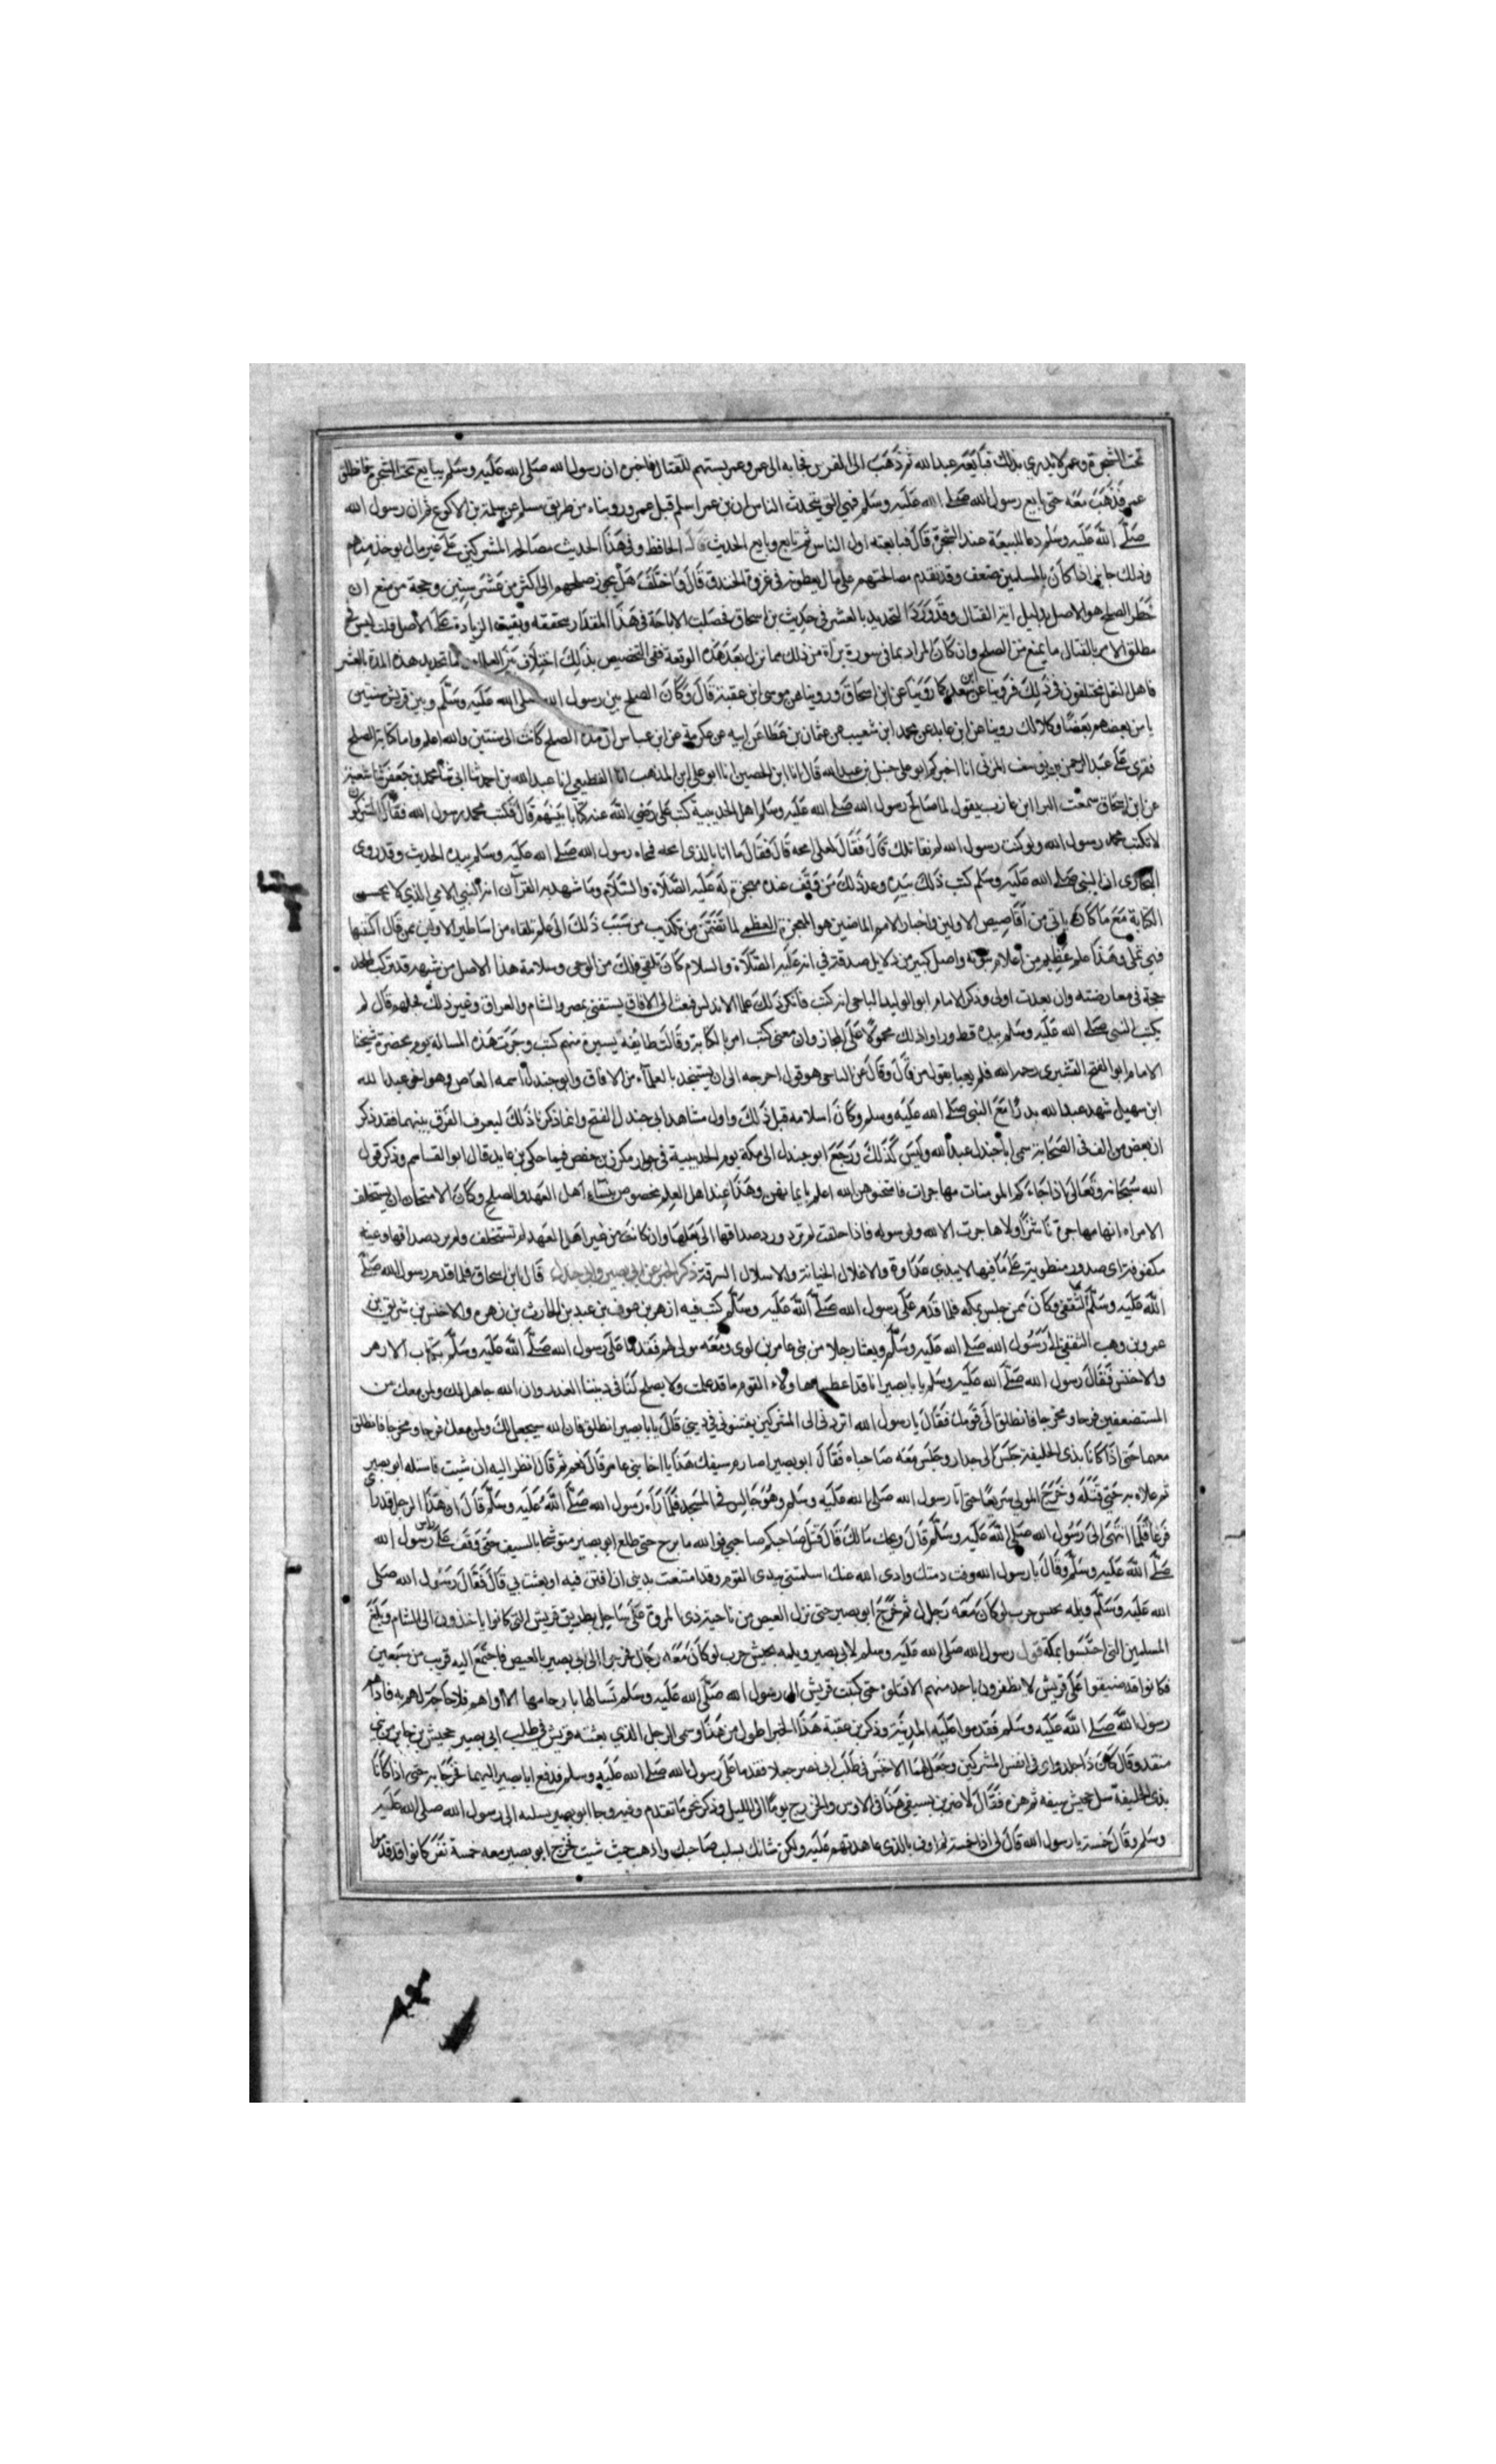 تحت الشجرة وعمر لا يدري بذلك فبايعه عبد الله ثم ذهب الى الفرس فجا به الى عمر وعمر يستلئم للقتال فاخبره ان رسول الله صلى الله عليه وسلم يبايع تحت الشجرة فانطلق
عمر فذهب معه حتى بايع رسول الله صلى الله عليه وسلم فهي التي يتحدث الناس ان بن عمر اسلم قبل عمر وروينا من طريق مسلم عن سلمة بن الاكوع ان رسول الله
صلى الله عليه وسلم دعا للبيعة عند الشجرة قال فبايعته اول الناس ثم بايع وبايع الحديث قال الحافظ وفي هذا الحديث مصالحة المشركين على غير مال يوخذ منهم
وذلك جايز اذا كان بالمسلمين ضعف وقد تقدم مصالحتهم على مال يعطونه في غزوة الخندق قال واختلف هل يجوز صلحهم الى اكثر من عشر سنين وحجة من منع ان
حظر الصلح هو الاصل بدليل اية القتال وقد ورد التحديد بالعشر في حديث بن اسحاق فحصلت الاباحة في هذا المقدار متحققه وبقيت الزيادة على الاصل قلت ليس في
مطلق الامر بالقتال ما يمنع من الصلح وان كان المراد بما في سورة براة من ذلك مما نزل بعد هذه الوقعة ففي التخصيص بذلك اختلاف بين العلماء اما تحديد هذه المدة بالعشر
فاهل النقل مختلفون في ذلك فروينا عن ابن سعد كما روينا عن ابن اسحاق وروينا عن موسى ابن عقبة قال وكان الصلح بين رسول الله صلى الله عليه وسلم وبين قريش سنتين
يامن بعضهم بعضا وكذلك روينا عن ابن عايد عن محمد ابن شعيب عن عثمان بن عطا عن ابيه عن عكرمة عن ابن عباس ان مدة الصلح كانت الى سنتين والله اعلم واما كتابة الصلح
فقرى على عبد الرحمن بن يوسف المزني انا اخبركم ابو علي حنبل بن عبد الله قال انا ابن الحصين انا ابو علي ابن المذهب انا القطيعي انا عبد الله بن احمد ثنا ابي ثنا محمد بن جعفر ثنا شعبة
عن ابي اسحاق سمعت البرا ابن عازب يقول لما صالح رسول الله صلى الله عليه وسلم اهل الحديبية كتب علي رضي الله عنه كتابا بينهم قال فكتب محمد رسول الله فقال المشركون
لا تكتب محمد رسول الله ولو كنت رسول الله لم نقاتلك قال فقال لعلي امحه قال فقال ما انا بالذي امحه فمحاه رسول الله صلى الله عليه وسلم بيده الحديث وقد روى
البخاري ان النبي صلى الله عليه وسلم كتب ذلك بيده وعد ذلك من وقف عنده معجزة له عليه الصلاة والسلام وما شهد به القرآن انه النبي الامي الذي لا يحسن
الكتابة مع ما كان ياتي من اقاصيص الاولين واخبار الامم الماضين هو المعجزة العظمى لما تضمن من تكذيب من نسب ذلك الى علم تلقاه من اساطير الاولين ممن قال اكتتبها
فهي تملى وهذا علم عظيم من اعلام نبوته واصل كبير من دلايل صدقه في انه عليه الصلاة والسلام كان تلقى ذلك من الوحي وسلامة هذا الاصل من شبهة قد تركب الملحد
حجة في معارضته وان بعدت اولى وذكر الامام ابو الوليد الباجي انه كتب فانكر ذلك علما الاندلس فبعث الى الافاق يستفتى بمصر والشام والعراق وغير ذلك فجلهم قال لم
يكتب النبي صلى الله عليه وسلم بيده قط وراوا ذلك محمولا على المجاز وان معنى كتب امر بالكتابة وقالت طايفة يسيرة منهم كتب وجرت هذه المسالة يوم بحضرة شيخنا
الامام ابو الفتح القشيري رحمه الله فلم يعبا بقول من قال وقال عن الباجي هو قول احرجه الى ان يستنجد بالعلماء من الافاق وابو جندل اسمه العاص وهو اخو عبد الله
ابن سهيل شهد عبد الله بدرا مع النبي صلى الله عليه وسلم وكان اسلامه قبل ذلك واول مشاهد ابي جندل الفتح وانما ذكرنا ذلك ليعرف الفرق بينهما فقد ذكر
ان بعض من الف في الصحابة سمى ابا جندل عبد الله وليس كذلك ورجع ابو جندل الى مكة يوم الحديبية في جوار مكرز بن حفص فيما حكى بن عايد قال ابو القاسم وذكر قول
الله سبحانه وتعالى اذا جاءكم المومنات مهاجرات فامتحنوهن الله اعلم بايمانهن وهذا عند اهل العلم مخصوص بنساء اهل العهد والصلح وكان الامتحان ان يستحلف
الامراه انها مهاجرة ناشزا ولا هاجرت الا لله ولرسوله فاذا حلفت لم ترد ورد صداقها الى بعلها وان كانت من غير اهل العهد لم تستحلف ولم يرد صداقها وعيبة
مكفوفة اي صدور منطوية على ما فيها لا يبدي عداوة والاغلال الخيانة والاسلال السرقة ذكر الخبر عن ابي بصير وابي جندل قال ابن اسحاق فلما قدم رسول الله صلى
الله عليه وسلم الثقفي وكان ممن حبس بمكة فلما قدم على رسول الله صلى الله عليه وسلم كتب فيه ازهر بن عوف بن عبد بن الحارث بن زهرة والاخنس بن شريق بن
عمرو بن وهب الثقفي الى رسول الله صلى الله عليه وسلم وبعثا رجلا من بني عامر بن لوى ومعه مولى لهم فقدما على رسول الله صلى الله عليه وسلم بكتاب الازهر
والاخنس فقال رسول الله صلى الله عليه وسلم يا با بصير انا قد اعطينا هاولاء القوم ما قد علمت ولا يصلح لنا في ديننا الغدر وان الله جاعل لك ولمن معك من
المستضعفين فرجا ومخرجا فانطلق الى قومك فقال يا رسول الله اتردني الى المشركين يفتنوني في ديني قال يا با بصير انطلق فان الله سيجعل لك ولمن معك فرجا ومخرجا فانطلق
معهما حتى اذا كانا بذي الحليفة جلس الى جدار وجلس معه صاحباه فقال ابو بصير اصارم سيفك هذا يا اخا بني عامر قال نعم ثم قال انظر اليه ان شيت فاستله ابو بصير
ثم علاه به حتى قتله وخرج المولى سريعا حتى اتا رسول الله صلى الله عليه وسلم وهو جالس في المسجد فلما رآه رسول الله صلى الله عليه وسلم قال ان هذا الرجل قد راى
فزعا فلما انتهى الى رسول الله صلى الله عليه وسلم قال ويحك مالك قال قتل صاحبكم صاحبي فوالله ما برح حتى طلع ابو بصير متوشحا بالسيف حتى وقف على رسول الله
صلى الله عليه وسلم وقال يا رسول الله وفت ذمتك وادى الله عنك اسلمتني بيدي القوم وقد امتنعت بديني ان افتن فيه او يعبث بي قال فقال رسول الله صلى
الله عليه وسلم ويلمه محش حرب لو كان معه رجال ثم خرج ابو بصير حتى نزل العيص من ناحية ذي المروة على ساحل بطريق قريش التي كانوا ياخذون الى الشام وبلغ
المسلمين الذي احتبسوا بمكة قول رسول الله صلى الله عليه وسلم لابي بصير ويلمه محش حرب لو كان معه رجال فخرجوا الى ابي بصير بالعيص فاجتمع اليه قريب من سبعين
فكانوا قد ضيقوا على قريش لا يظفرون باحد منهم الا قتلوه حتى كتبت قريش الى رسول الله صلى الله عليه وسلم تساله بارحامها الا اواهم فلا حاجة لهم به فاواهم
رسول الله صلى الله عليه وسلم فقدموا عليه المدينة وذكر بن عقبة هذا الخبر اطول من هذا وسمى الرجل الذي بعثته قريش في طلب ابي بصير جحيش بن جابر من بني
منقد وقال كان ذا جلد وراى في انفس المشركين وجعل لهما الاخنس في طلب ابي بصير جعلا فقدما على رسول الله صلى الله عليه وسلم فدفع ابا بصير اليهما فخرجا به حتى اذا كانا
بذي الحليفة سل جحيش سيفه ثم هزه فقال لاضربن بسيفي هذا في الاوس والخزرج يوما الى الليل وذكر نحو ما تقدم وفيه وجا ابو بصير بسلبه الى رسول الله صلى الله عليه
وسلم وقال خمسه يا رسول الله قال اني اذا خمسته لم اوف بالذي عاهدتهم عليه ولكن شانك بسلب صاحبك واذهب حيث شيت فخرج ابو بصير معه خمسة نفر كانوا قدموا